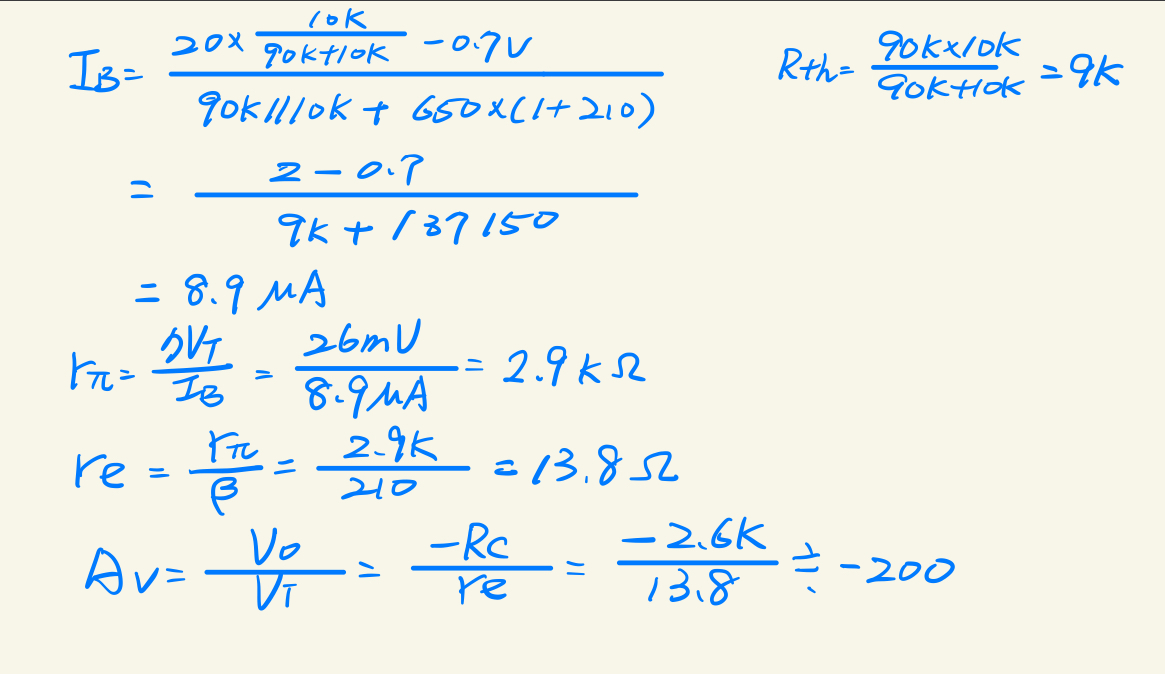 I_B = (20 × 10K/(90K+10K) − 0.7V) / (90K//10K + 650×(1+210))
R_th = (90K×10K)/(90K+10K) = 9K
= (2 − 0.7)/(9K + 137150)
= 8.9 μA
r_π = ηV_T/I_B = 26mV/8.9μA = 2.9 KΩ
r_e = r_π/β = 2.9K/210 = 13.8 Ω
A_V = V_o/V_T = −R_C/r_e = −2.6K/13.8 ≑ −200